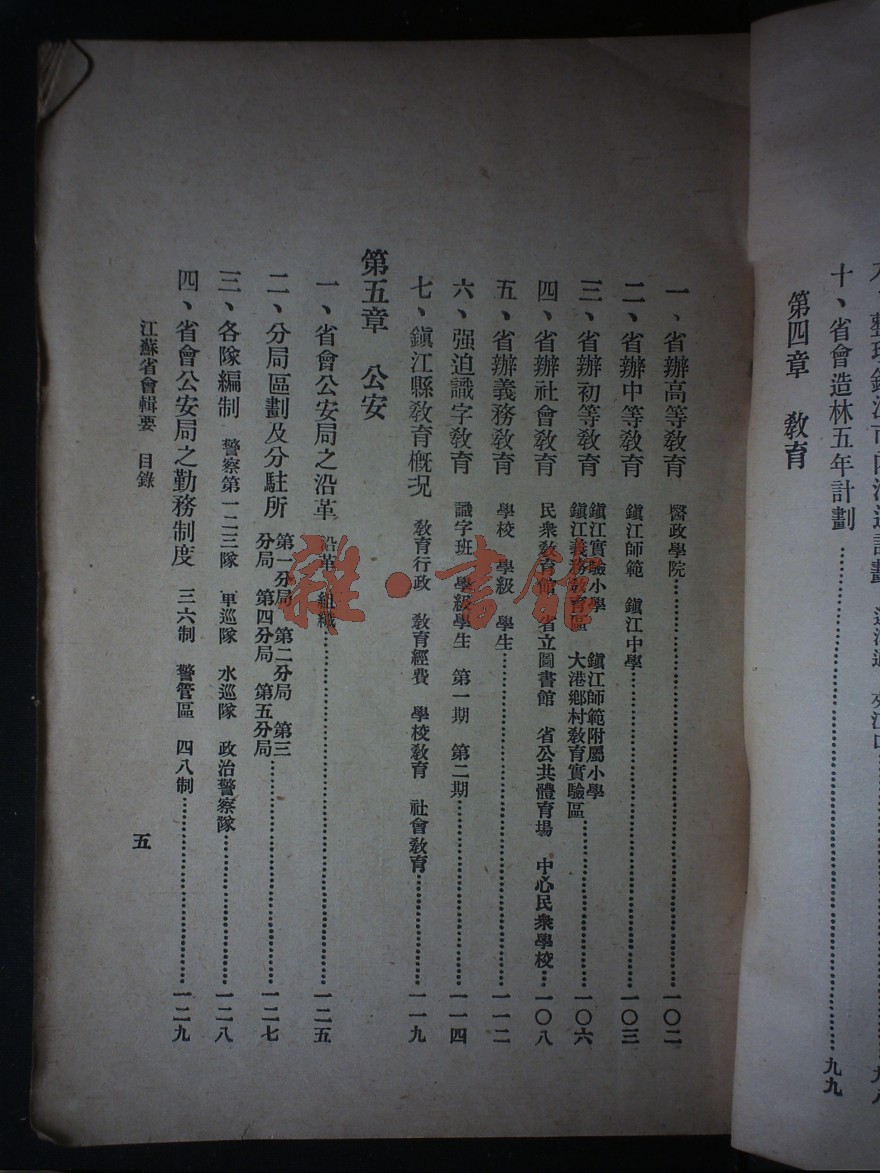 十、省會造林五年計劃…………九九
第四章　教育
一、省辦高等教育　醫政學院…………一〇二
二、省辦中等教育　鎭江師範　鎭江中學…………一〇三
三、省辦初等教育　鎭江實驗小學　鎭江師範附屬小學
鎭江義務教育區　大港鄉村教育實驗區…………一〇六
四、省辦社會教育　民衆教育館　省立圖書館　省公共體育場　中心民衆學校…一〇八
五、省辦義務教育　學校　學級　學生…………一一二
六、强迫識字教育　識字班　學級學生　第一期　第二期…………一一四
七、鎭江縣教育槪況　教育行政　教育經費　學校教育　社會教育…………一一九
第五章　公安
一、省會公安局之沿革　沿革　組織…………一二五
二、分局區劃及分駐所　第一分局　第二分局　第三
分局　第四分局　第五分局…………一二七
三、各隊編制　警察第一二三隊　車巡隊　水巡隊　政治警察隊…………一二八
四、省會公安局之勤務制度　三六制　警管區　四八制…………一二九
江蘇省會輯要　目錄
五
雜·書館